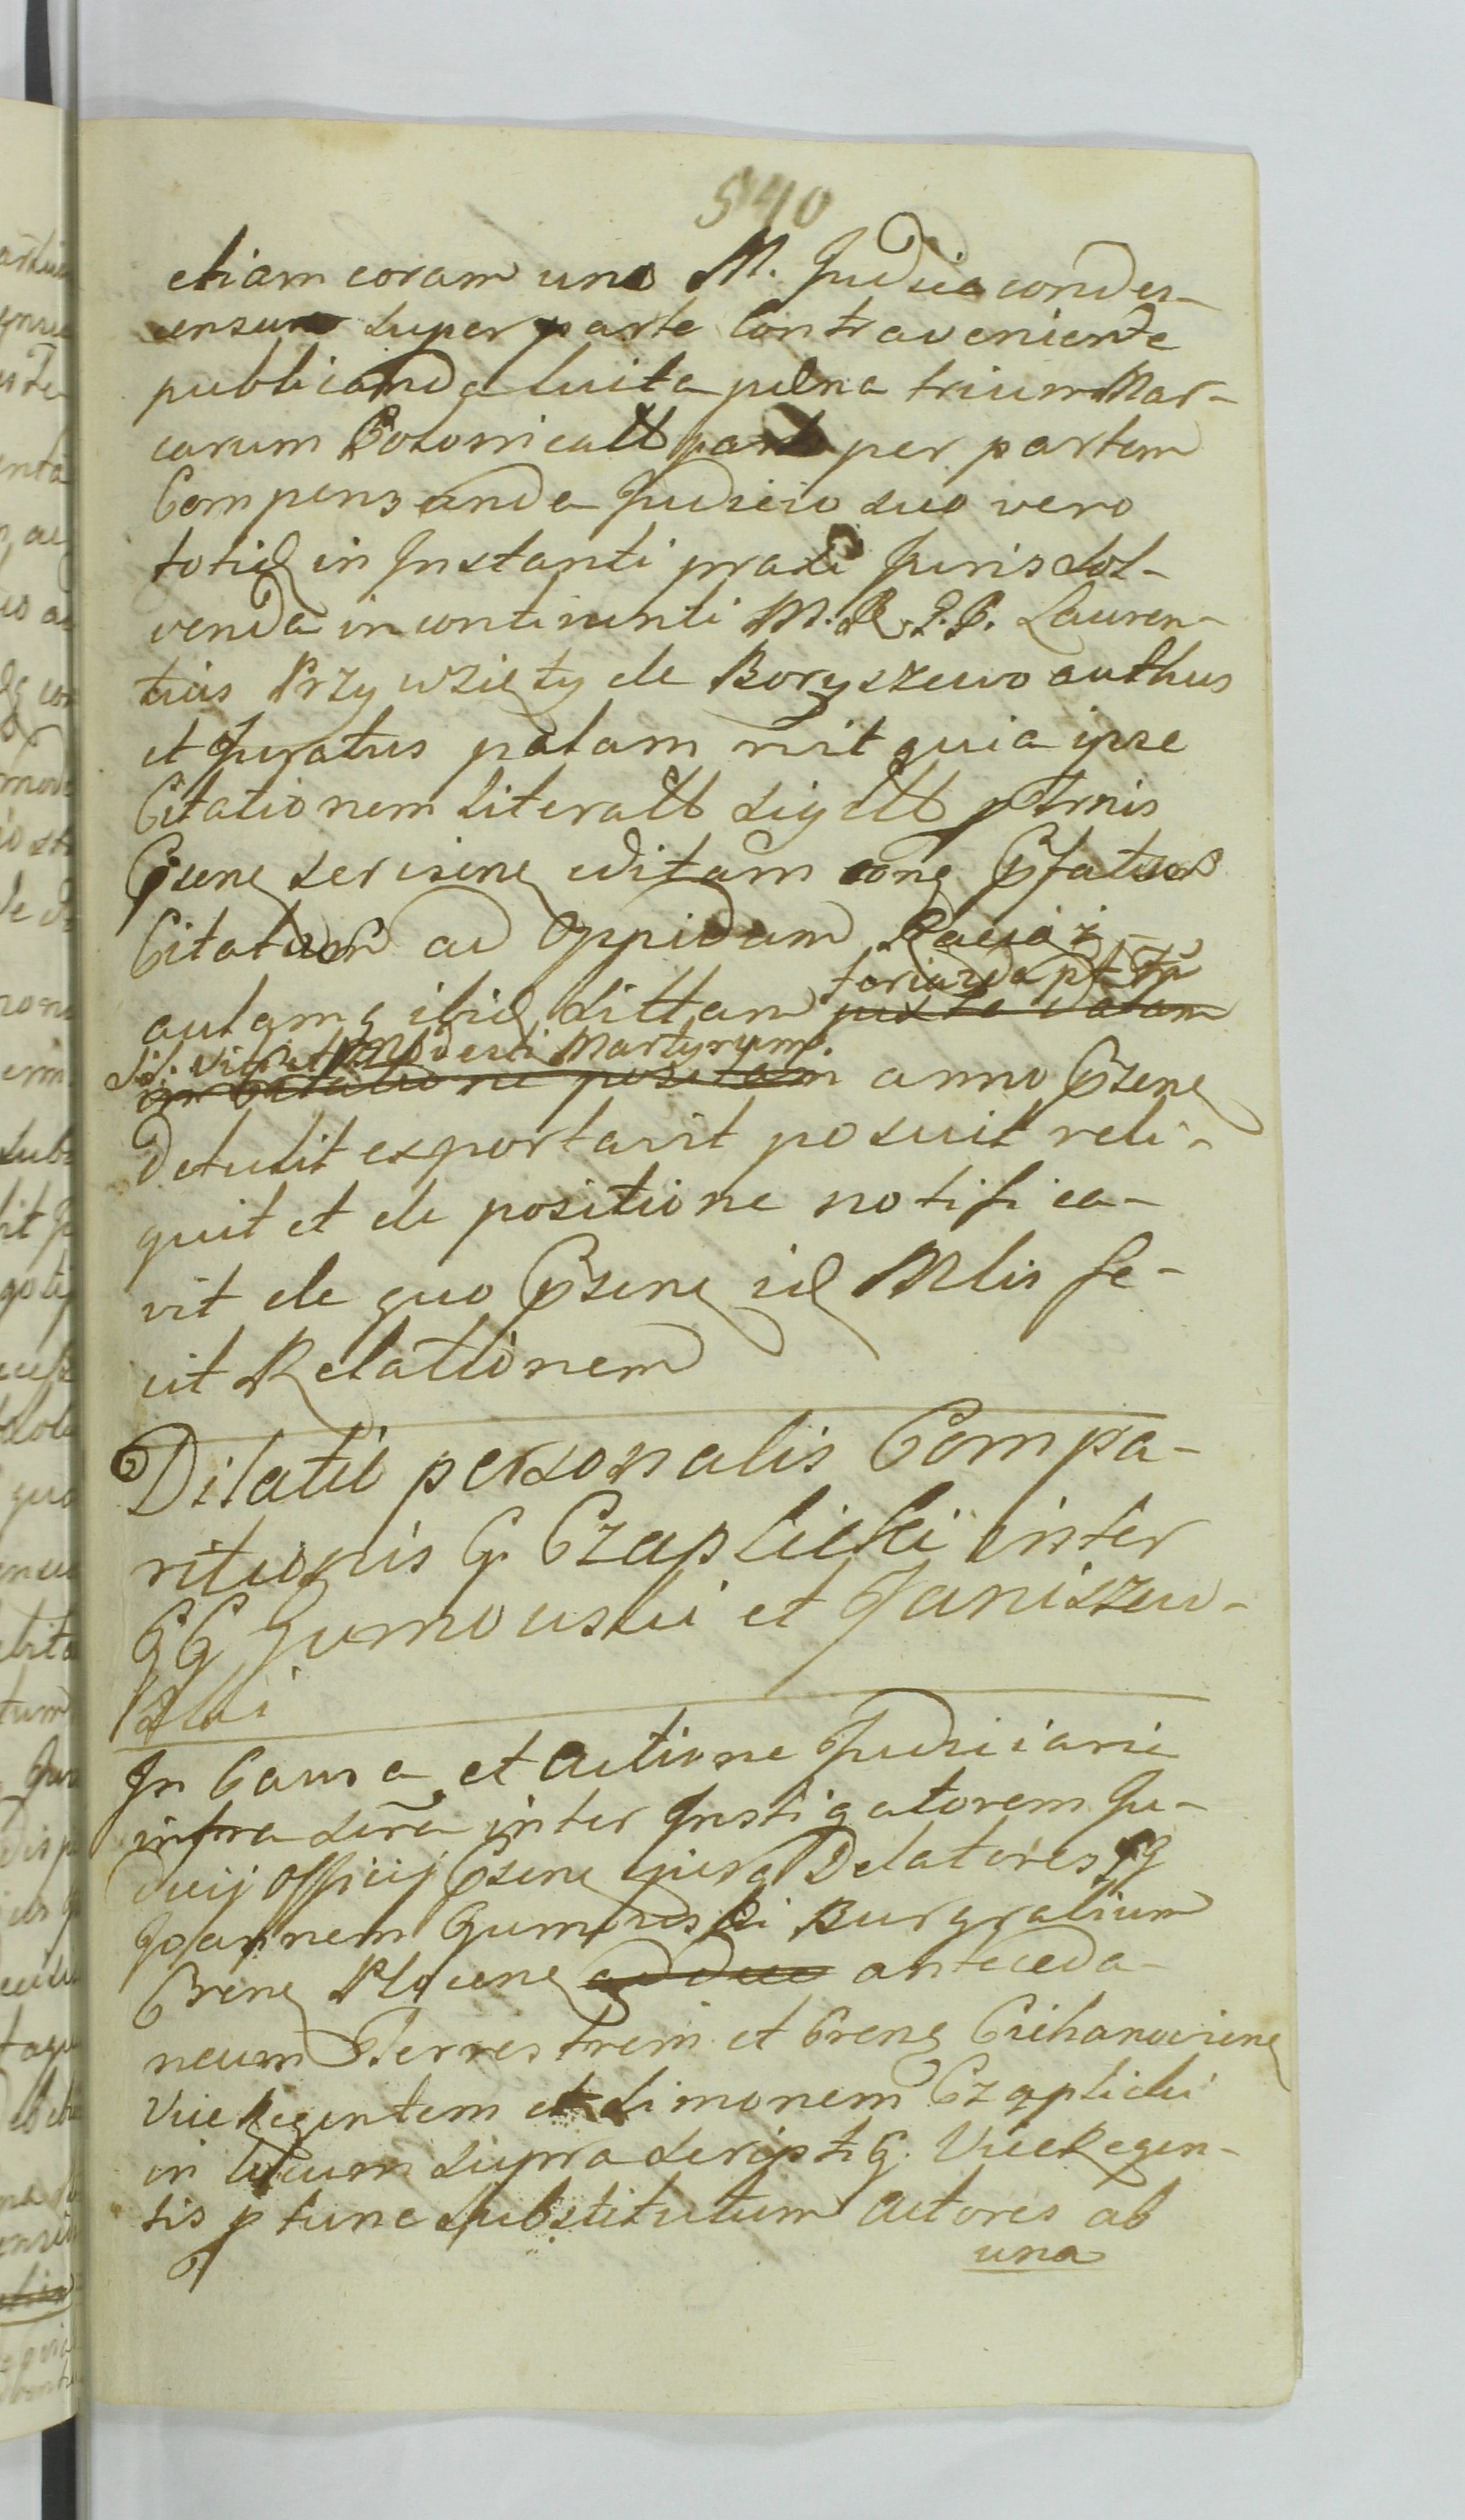 540
etiam coram uno M. Judicio condes-
censura super parte Contraveniente
publicanda luita pœna trium Mar-
carum Polonicall parte per partem
Compensanda Judicio suo vero
totid in Instanti praxi Juris sol-
venda in continenti M. R. J. P. Lauren-
tius Przywzięty de Boryszewo authus
et Juratus palam rcit quia ipse
Citationem literall sigill ptrnis
Psene serisene editam cong Pfatus
Citatum ad Oppidum Raciąż
autqmq ibid sittam juxta datam
feria 2da pt fm
SS. Viti et Modesti Martyrum.
in Citatione positam anno Psene
Detulit exportavit posuit reli-
quit et de positione notifica-
vit de quo Psene id Mlis fe-
cit Relationem
Dilatio personalis Compa-
ritionis G. Czaplicki inter
GG Gumowski et Janiszew-
ski
In Causa et Actione Judiciaria
infra scra inter Instigatorem Ju-
dicij Officij Psene ejusq Delatores GG
Joannem Gumowski Burgrabium
Crene Plocene ad duc anteceda-
neum Terrestrem et Crene Ciechanoviene
ViceRegentem et Simonem Czaplicki
in locum supra scripti G. ViceRegen-
tis p tunc substitutum Actores ab
una